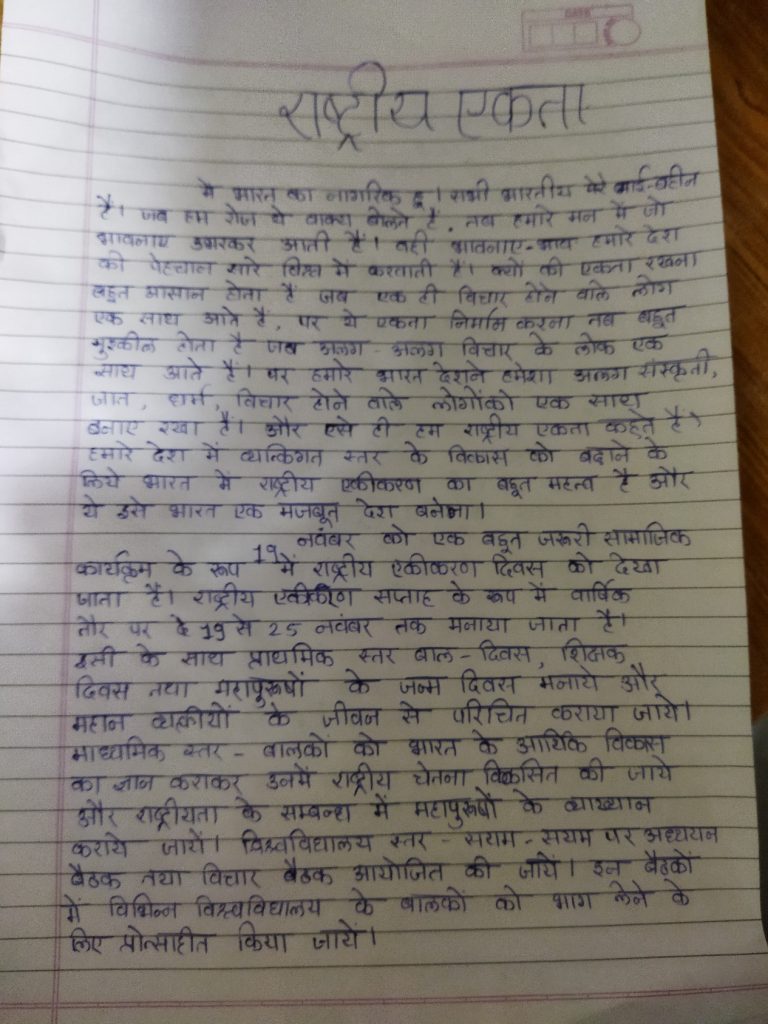 राष्ट्रीय एकता
मे भारत का नागरिक हू। सभी भारतीय मेरे भाई-बहीन
है। जब हम रोज ये वाक्य बोलते है, तब हमारे मन मे जो
भावनाए उभरकर आती है। वही भावनाए-भाव हमारे देश
की पेहचान सारे विश्व मे करवाती है। क्यों की एकता रखना
बहुत आसान होता है जब एक ही विचार होने वाले लोग
एक साथ आते है, पर ये एकता निर्माण करना तब बहूत
मुश्कील होता है जब अलग-अलग विचार के लोक एक
साथ आते है। पर हमारे भारत देशने हमेशा अलग संस्कृती,
जात, धर्म, विचार होने वाले लोगोंको एक साथ
बनाए रखा है। और एसे ही हम राष्ट्रीय एकता कहते है।
हमारे देश में व्यक्तिगत स्तर के विकास को बढाने के
लिये भारत में राष्ट्रीय एकीकरण का बहूत महत्व है और
ये इसे भारत एक मजबूत देश बनेगा।
नवंबर को एक बहूत जरूरी सामाजिक
कार्यक्रम के रूप 19 में राष्ट्रीय एकीकरण दिवस को देखा
जाता है। राष्ट्रीय एकीकरण सप्ताह के रूप में वार्षिक
तौर पर दे 19 से 25 नवंबर तक मनाया जाता है।
इसी के साथ प्राथमिक स्तर बाल-दिवस, शिक्षक
दिवस तथा महापुरूषों के जन्म दिवस मनाये और
महान व्यक्तीयों के जीवन से परिचित कराया जाये।
माध्यमिक स्तर - बालकों को भारत के आर्थिक विकास
का ज्ञान कराकर उनमें राष्ट्रीय चेतना विकसित की जाये
और राष्ट्रीयता के सम्बन्ध में महापुरूषों के व्याख्यान
कराये जायें। विश्वविद्यालय स्तर - समय-समय पर अध्ययन
बैठक तथा विचार बैठक आयोजित की जायें। इन बैठकों
में विभिन्न विश्वविद्यालय के बालकों को भाग लेने के
लिए प्रोत्साहीत किया जायें।